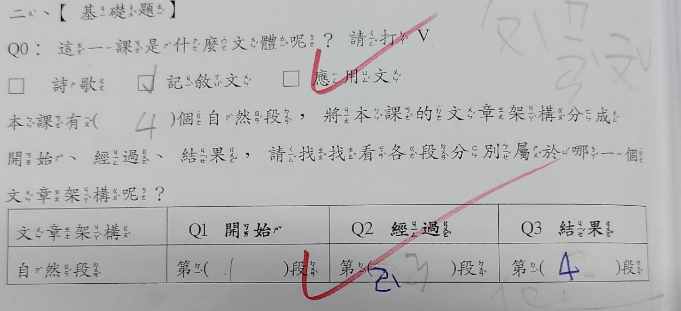 二、【基礎題】
Q0：這一課是什麼文體呢？請打V
□ 詩歌 □ 記敘文 □ 應用文
本課有( 4 )個自然段，將本課的文章架構分成
開始、經過、結果，請找找看各段分別屬於哪一個
文章架構呢？
文章架構 Q1 開始 Q2 經過 Q3 結果
自然段 第( 1 )段 第( 2、3 )段 第( 4 )段